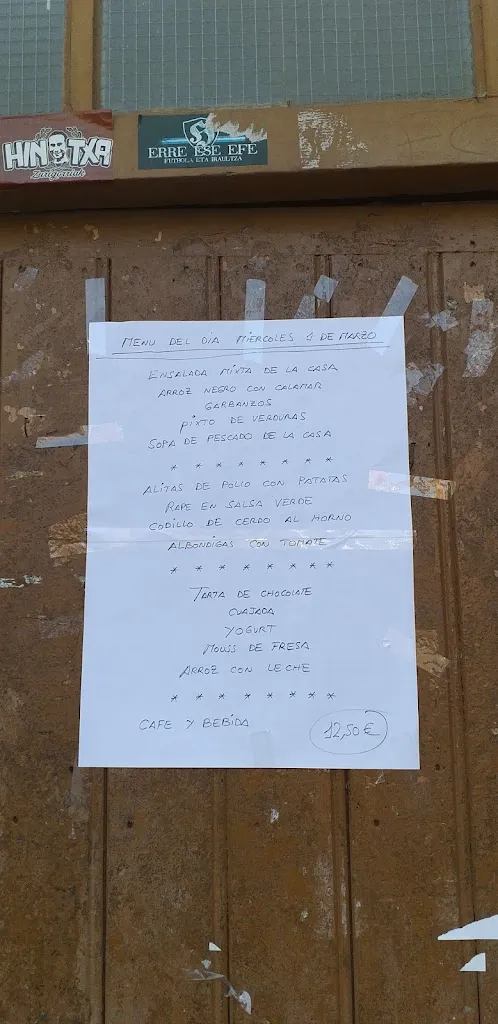 HINTXA
Zurigorriak
ERRE ESE EFE
FUTBOLA ETA IRAULTZA
MENU DEL DIA MIERCOLES 4 DE MARZO
ENSALADA MIXTA DE LA CASA
ARROZ NEGRO CON CALAMAR
GARBANZOS
PIXTO DE VERDURAS
SOPA DE PESCADO DE LA CASA
* * * * * * * *
ALITAS DE POLLO CON PATATAS
RAPE EN SALSA VERDE
CODILLO DE CERDO AL HORNO
ALBONDIGAS CON TOMATE
* * * * * * * *
TARTA DE CHOCOLATE
CUAJADA
YOGURT
MOUSS DE FRESA
ARROZ CON LECHE
* * * * * * * *
CAFE Y BEBIDA
12,50€